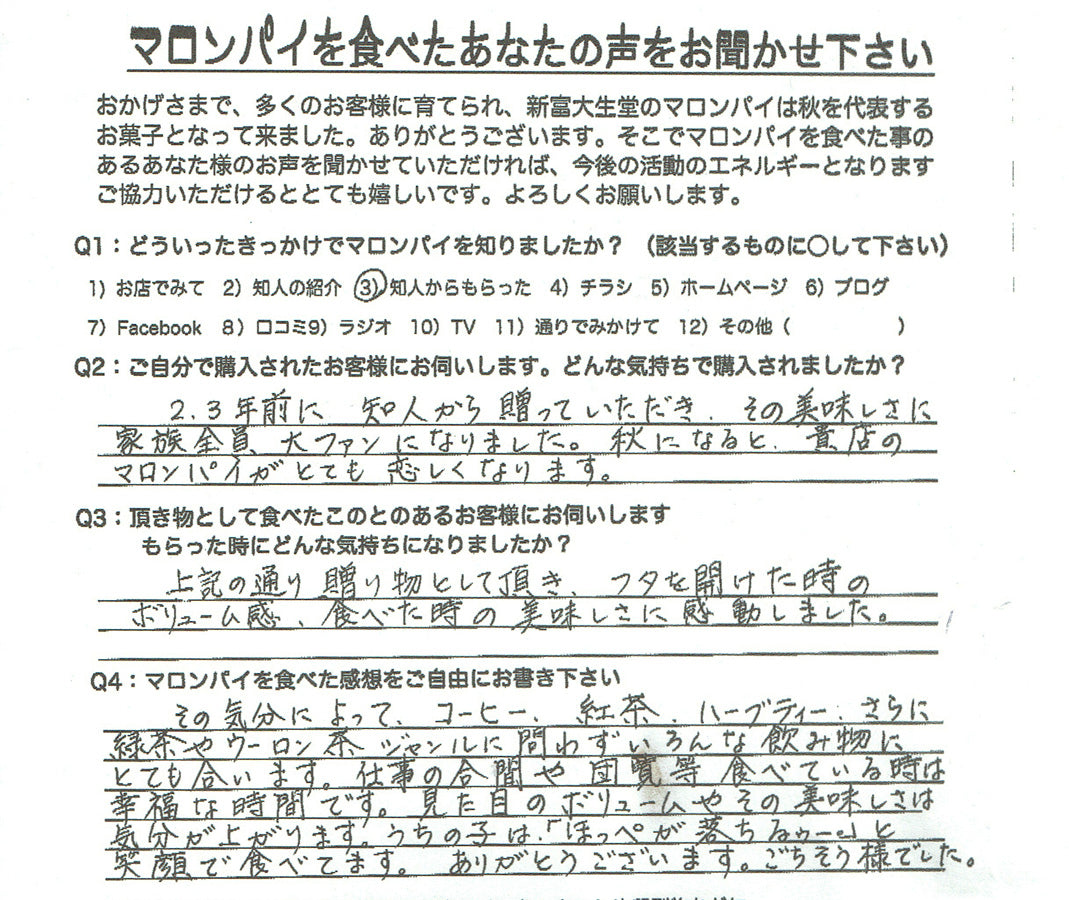 マロンパイを食べたあなたの声をお聞かせ下さい
おかげさまで、多くのお客様に育てられ、新富大生堂のマロンパイは秋を代表する
お菓子となって来ました。ありがとうございます。そこでマロンパイを食べた事の
あるあなた様のお声を聞かせていただければ、今後の活動のエネルギーとなります
ご協力いただけるととても嬉しいです。よろしくお願いします。
Q1：どういったきっかけでマロンパイを知りましたか？（該当するものに〇して下さい）
1）お店でみて 2）知人の紹介 3）知人からもらった 4）チラシ 5）ホームページ 6）ブログ
7）Facebook 8）口コミ9）ラジオ 10）TV 11）通りでみかけて 12）その他（ ）
Q2：ご自分で購入されたお客様にお伺いします。どんな気持ちで購入されましたか？
2.3年前に 知人から贈っていただき、その美味しさに
家族全員、大ファンになりました。秋になると、貴店の
マロンパイがとても恋しくなります。
Q3：頂き物として食べたこのとのあるお客様にお伺いします
もらった時にどんな気持ちになりましたか？
上記の通り贈り物として頂き、フタを開けた時の
ボリューム感、食べた時の美味しさに感動しました。
Q4：マロンパイを食べた感想をご自由にお書き下さい
その気分によって、コーヒー、紅茶、ハーブティー、さらに
緑茶やウーロン茶 ジャンルに問わずいろんな飲み物に
とても合います。仕事の合間や団欒等食べている時は
幸福な時間です。見た目のボリュームやその美味しさは
気分が上がります。うちの子は、「ほっぺが落ちるゥー。」と
笑顔で食べてます。ありがとうございます。ごちそう様でした。